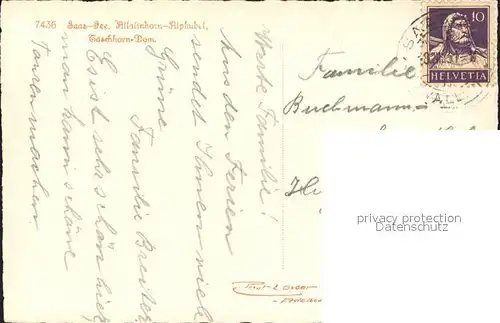 7436 Saas-Fee. Allalinhorn-Alphubel,
Täschhorn-Dom.
Werte Familie!
Aus den Ferien
sendet Ihnen viele
Grüsse
Familie Breiter
Es ist sehr schön hier
man kann schöne
Touren machen
Familie
Buchmann-
10
HELVETIA
privacy protection
Datenschutz